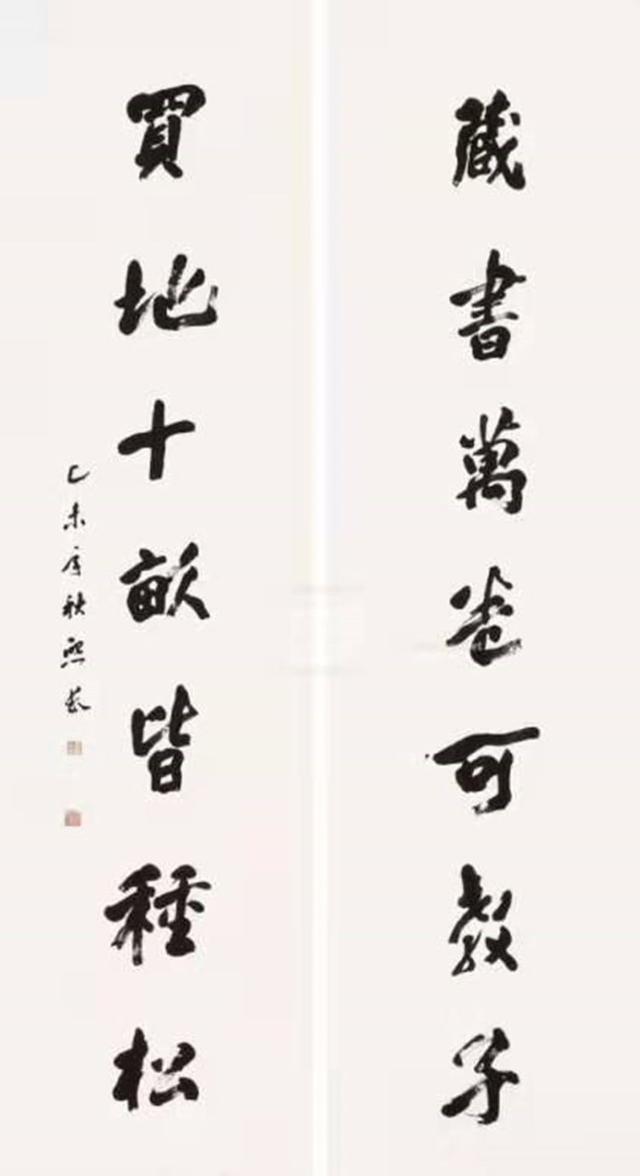 藏書萬卷可教子
買地十畝皆種松
乙未年秋熙